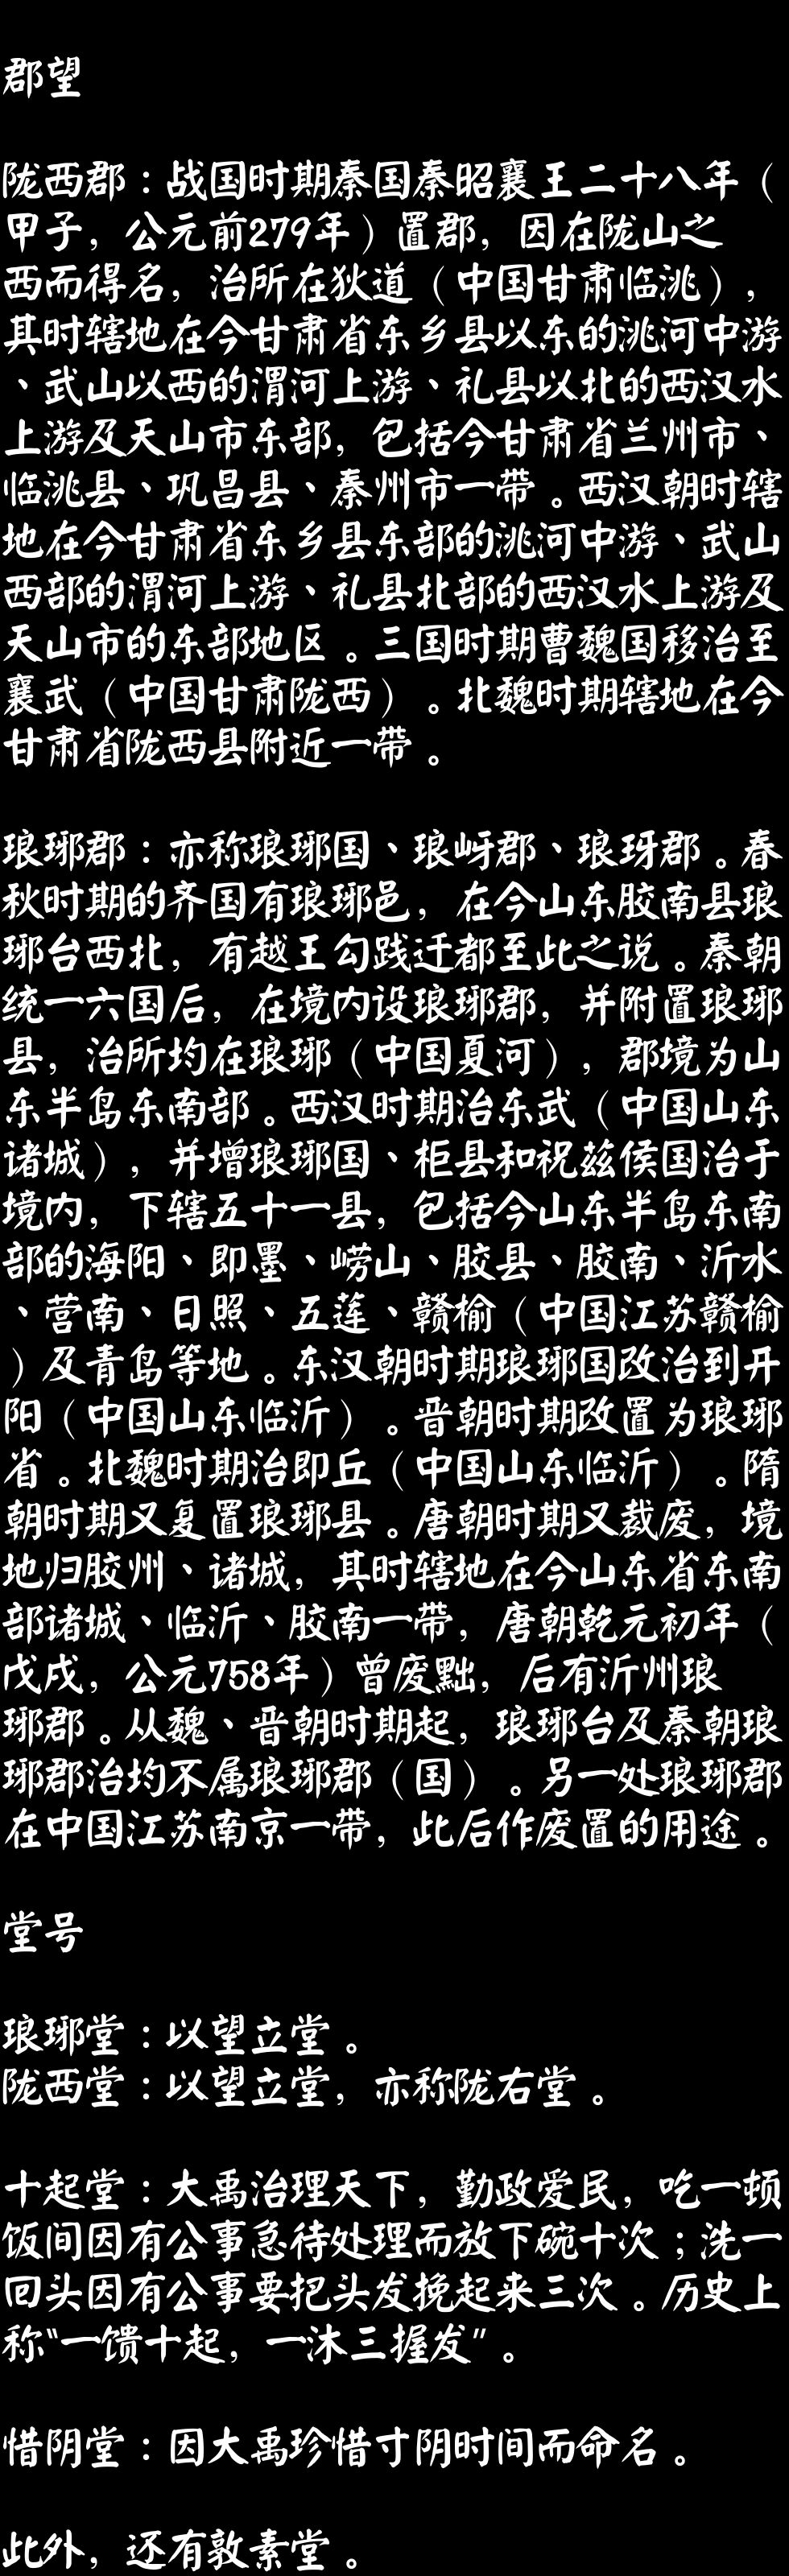 郡望
陇西郡：战国时期秦国秦昭襄王二十八年（
甲子，公元前279年）置郡，因在陇山之
西而得名，治所在狄道（中国甘肃临洮），
其时辖地在今甘肃省东乡县以东的洮河中游
、武山以西的渭河上游、礼县以北的西汉水
上游及天山市东部，包括今甘肃省兰州市、
临洮县、巩昌县、秦州市一带。西汉朝时辖
地在今甘肃省东乡县东部的洮河中游、武山
西部的渭河上游、礼县北部的西汉水上游及
天山市的东部地区。三国时期曹魏国移治至
襄武（中国甘肃陇西）。北魏时期辖地在今
甘肃省陇西县附近一带。
琅琊郡：亦称琅琊国、琅岈郡、琅玡郡。春
秋时期的齐国有琅琊邑，在今山东胶南县琅
琊台西北，有越王勾践迁都至此之说。秦朝
统一六国后，在境内设琅琊郡，并附置琅琊
县，治所均在琅琊（中国夏河），郡境为山
东半岛东南部。西汉时期治东武（中国山东
诸城），并增琅琊国、柜县和祝兹侯国治于
境内，下辖五十一县，包括今山东半岛东南
部的海阳、即墨、崂山、胶县、胶南、沂水
、营南、日照、五莲、赣榆（中国江苏赣榆
）及青岛等地。东汉朝时期琅琊国改治到开
阳（中国山东临沂）。晋朝时期改置为琅琊
省。北魏时期治即丘（中国山东临沂）。隋
朝时期又复置琅琊县。唐朝时期又裁废，境
地归胶州、诸城，其时辖地在今山东省东南
部诸城、临沂、胶南一带，唐朝乾元初年（
戊戌，公元758年）曾废黜，后有沂州琅
琊郡。从魏、晋朝时期起，琅琊台及秦朝琅
琊郡治均不属琅琊郡（国）。另一处琅琊郡
在中国江苏南京一带，此后作废置的用途。
堂号
琅琊堂：以望立堂。
陇西堂：以望立堂，亦称陇右堂。
十起堂：大禹治理天下，勤政爱民，吃一顿
饭间因有公事急待处理而放下碗十次；洗一
回头因有公事要把头发挽起来三次。历史上
称“一馈十起，一沐三握发”。
惜阴堂：因大禹珍惜寸阴时间而命名。
此外，还有敦素堂。